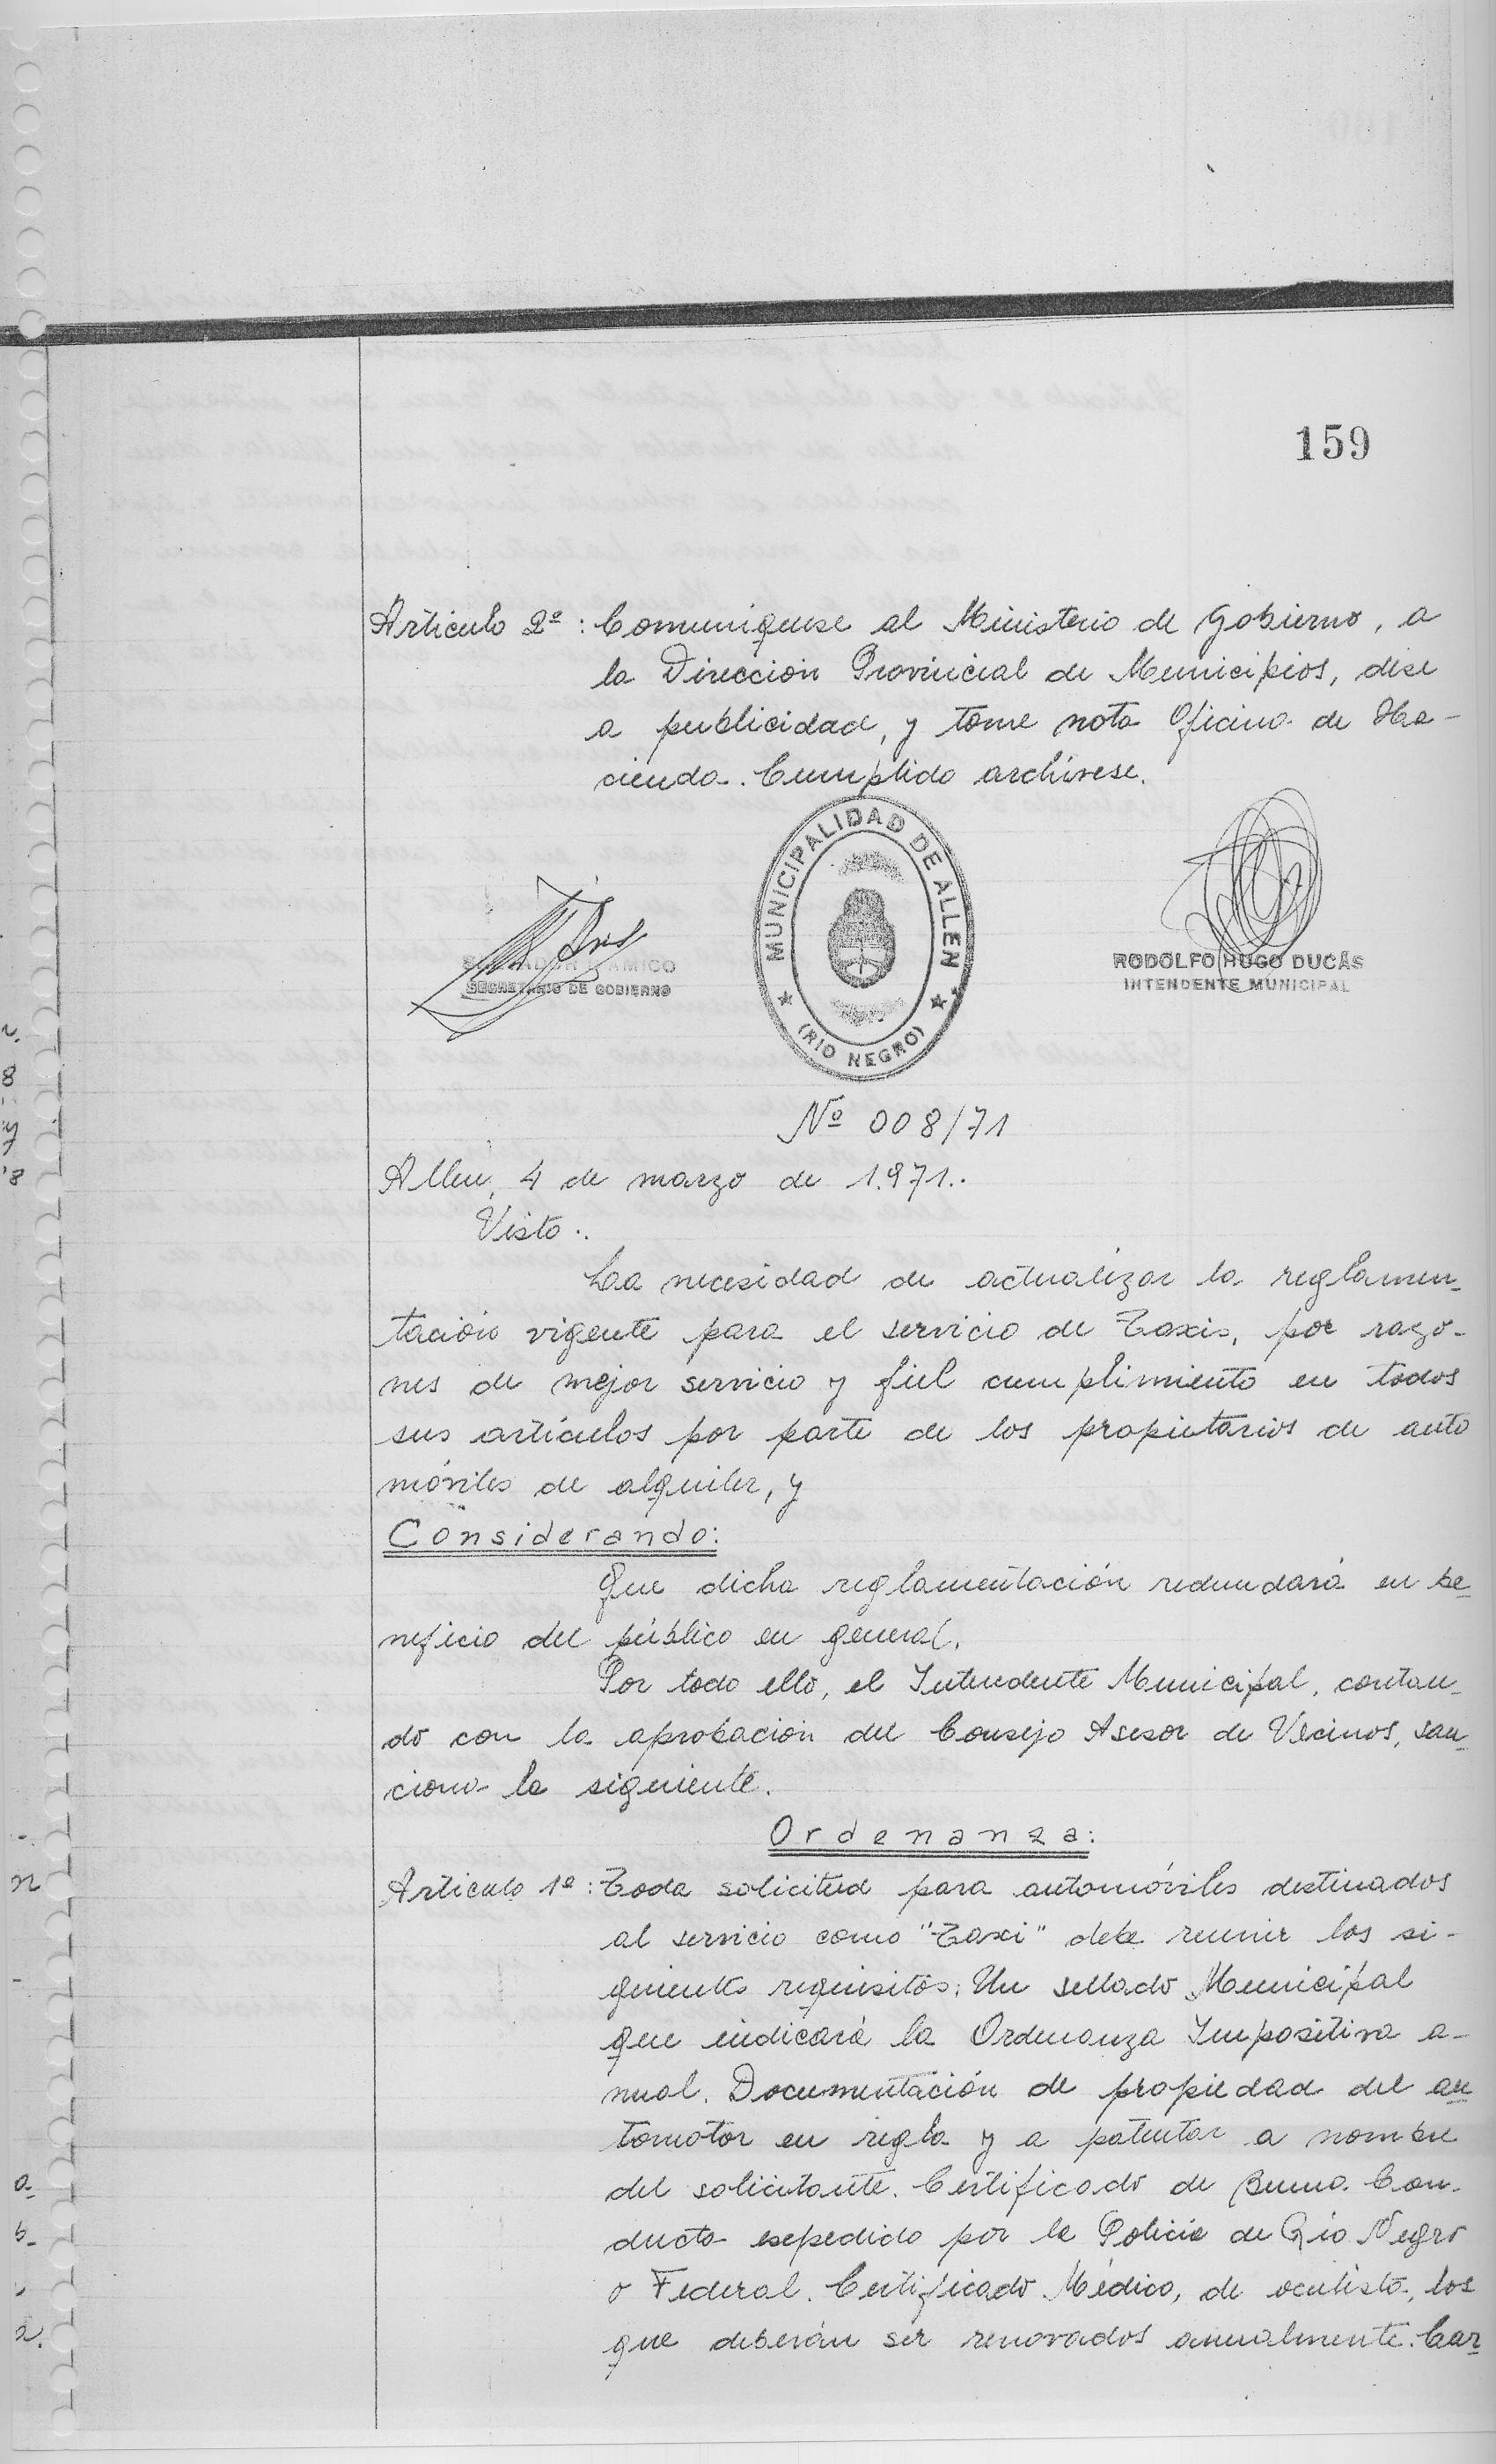 159
Artículo 2º: Comuníquese al Ministerio de Gobierno, a
la Dirección Provincial de Municipios, dése
a publicidad, y tome nota Oficina de Ha-
cienda. Cumplido archívese.
MUNICIPALIDAD DE ALLEN
(RIO NEGRO)
D'AMICO
SECRETARIO DE GOBIERNO
RODOLFO HUGO DUCÁS
INTENDENTE MUNICIPAL
Nº 008/71
Allen, 4 de marzo de 1.971.-
Visto:
La necesidad de actualizar la reglamen-
tación vigente para el servicio de Taxis, por razo-
nes de mejor servicio y fiel cumplimiento en todos
sus artículos por parte de los propietarios de auto
móviles de alquiler, y
Considerando:
Que dicha reglamentación redundará en be-
neficio del público en general.
Por todo ello, el Intendente Municipal, contan-
do con la aprobación del Consejo Asesor de Vecinos, san-
ciona la siguiente.
Ordenanza:
Artículo 1º: Toda solicitud para automóviles destinados
al servicio como "Taxi" debe reunir los si-
guientes requisitos: Un sellado Municipal
que indicará la Ordenanza Impositiva a-
nual. Documentación de propiedad del au
tomotor en regla y a patentar a nombre
del solicitante. Certificado de Buena Con-
ducta expedido por la Policía de Río Negro
o Federal. Certificado Médico, de oculista, los
que deberán ser renovados anualmente. Car-